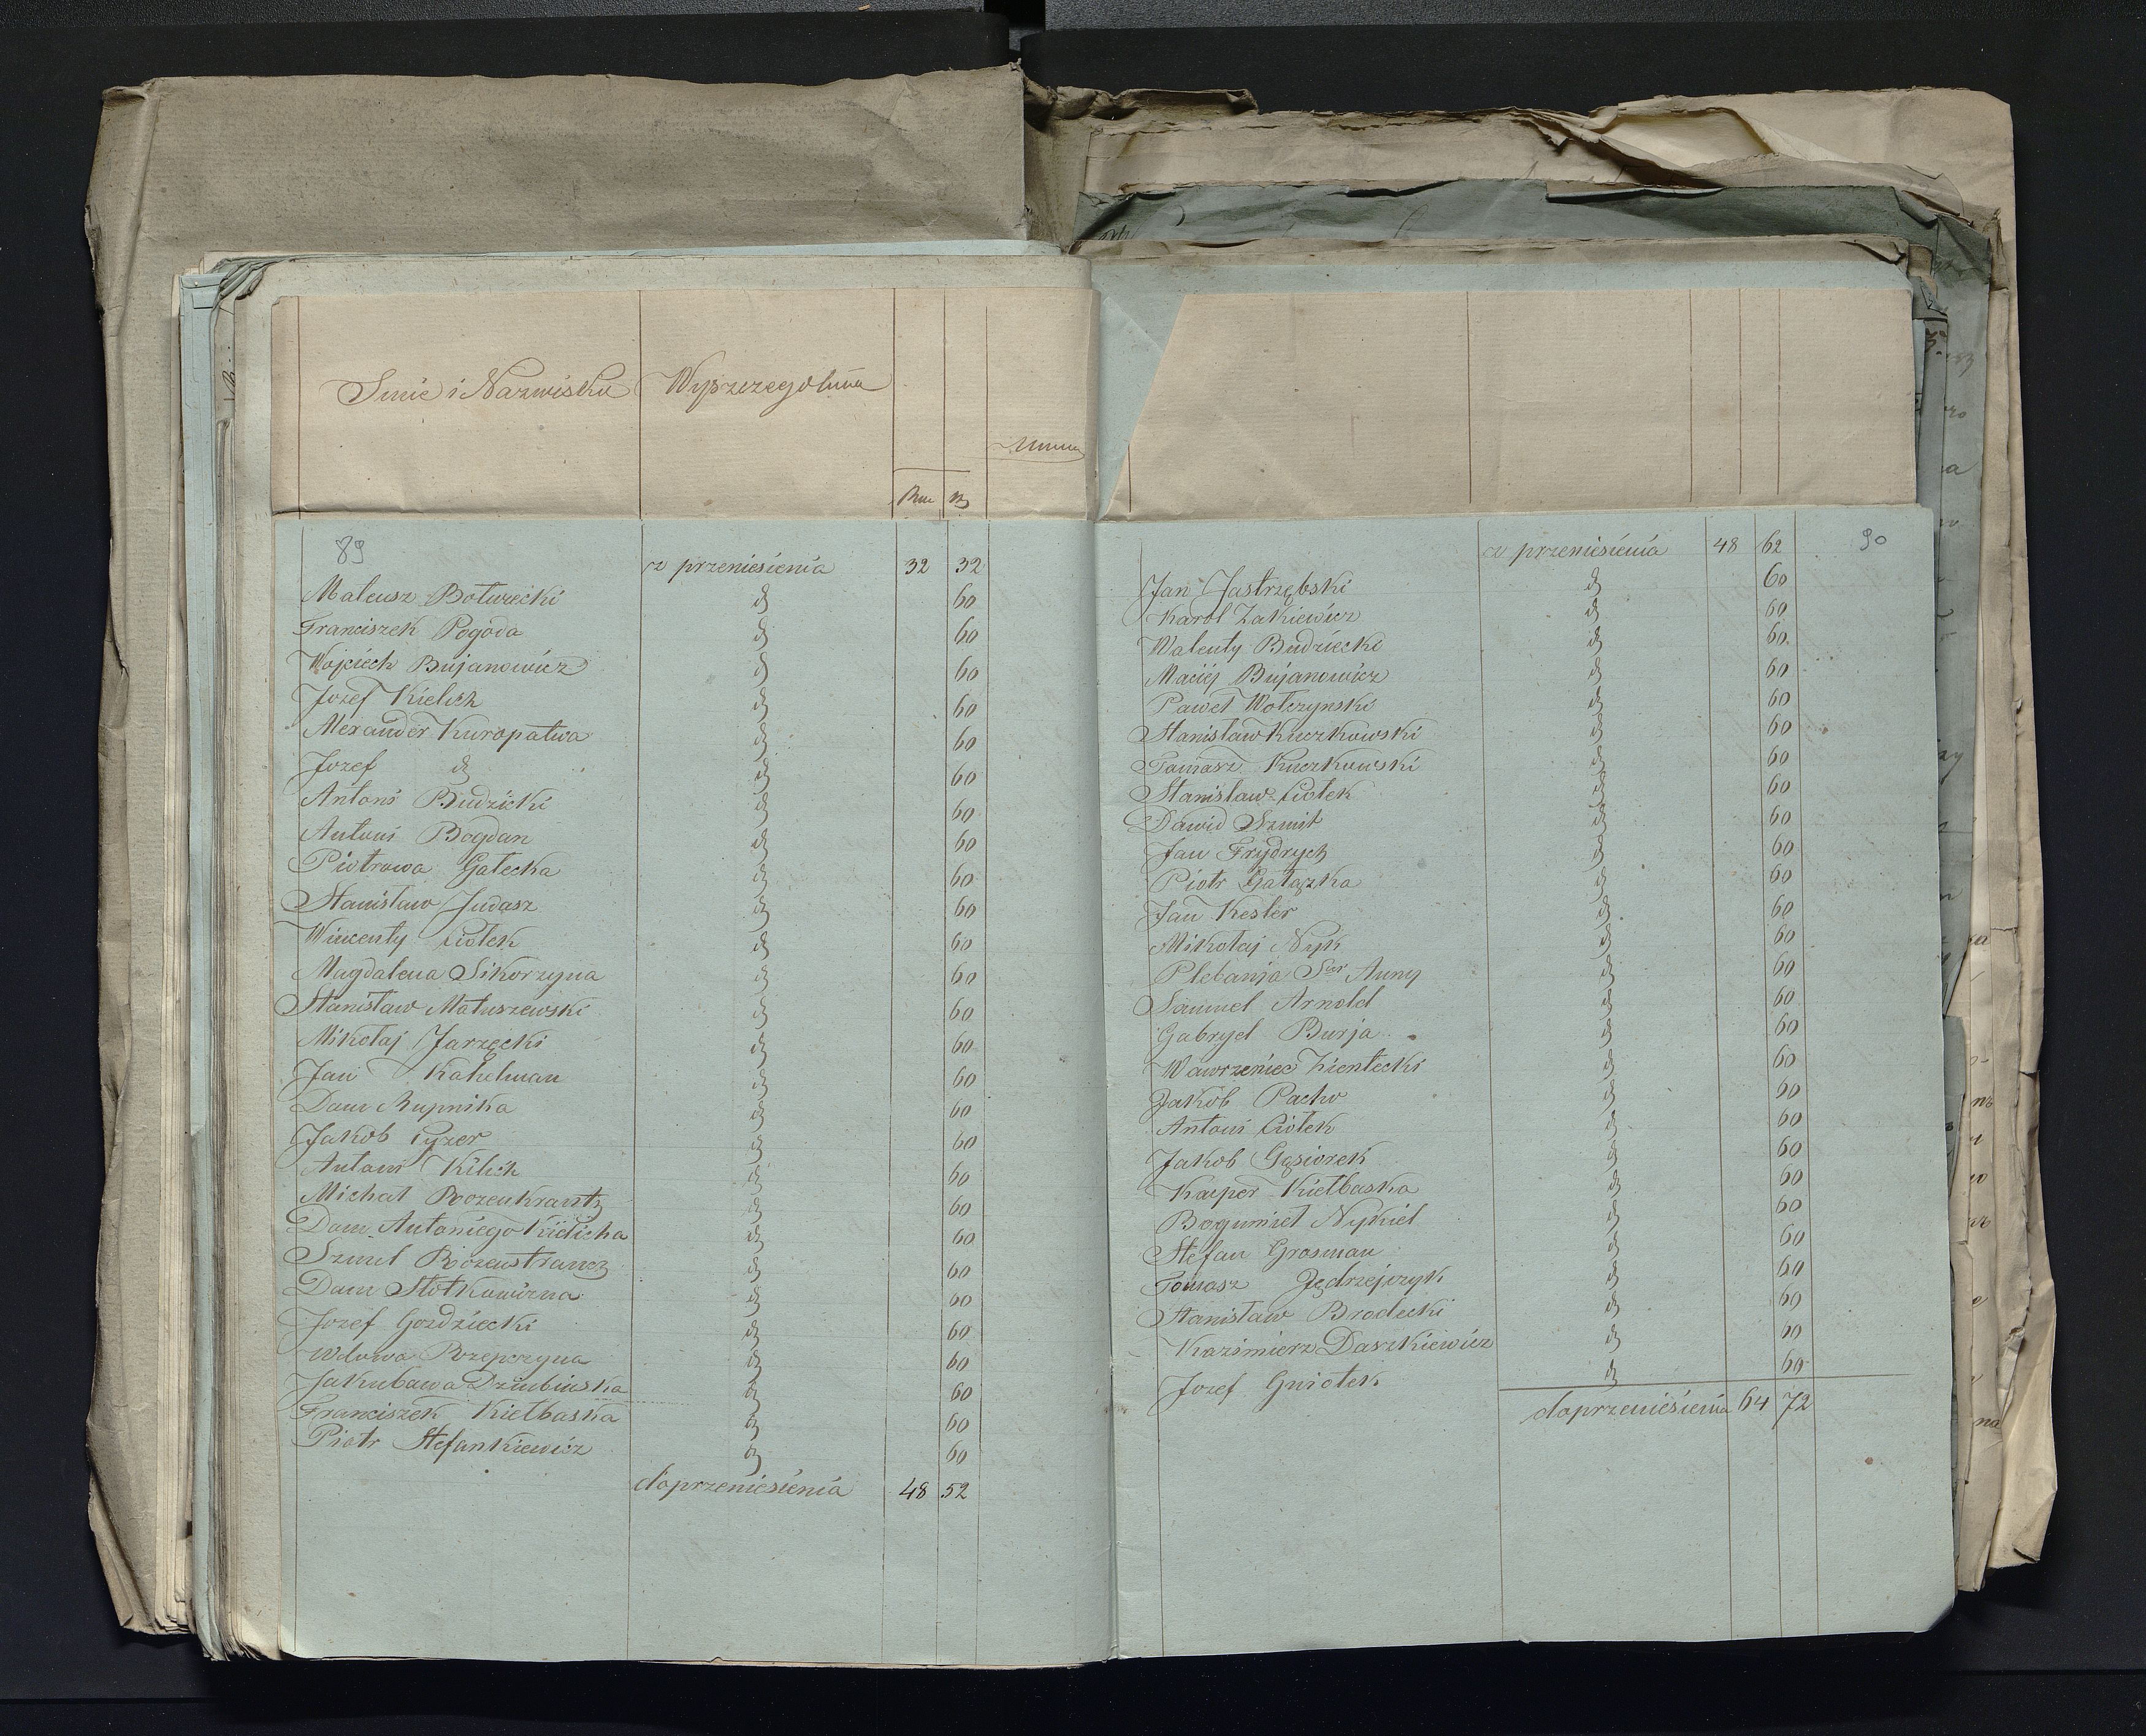 Imie i Nazwisko Wyszczegolnia
Summa
Rue K
89
z przeniesienia 32 32
Mateusz Boturecki d 60
Franciszek Pogoda d 60
Wojciech Bujanowicz d 60
Jozef Kielich d 60
Alexander Kuropatwa d 60
Jozef d d 60
Antoni Budzicki d 60
Antoni Bogdan d 60
Piotrowa Gałecka d 60
Stanisław Judasz d 60
Wincenty Ciołek d 60
Magdalena Sikorzyna d 60
Stanisław Matuszewski d 60
Mikołaj Jarzęcki d 60
Jan Kahelman d 60
Dom Rupnika d 60
Jakób Cyzer d 60
Antoni Kilich d 60
Michał Rozenkrantz d 60
Dom Antoniego Kielicha d 60
Szmul Rozenstrauch d 60
Dom Stołkowizna d 60
Jozef Gozdziecki d 60
Wdowa Rzepczyna d 60
Jakubowa Dziubinska d 60
Franciszek Kiełbaska d 60
Piotr Stefankiewicz d 60
do przeniesienia 48 52
z przeniesienia 48 62 90
Jan Jastrzębski d 60
Karol Zakiewicz d 60
Walenty Budziecki d 60
Maciej Bujanowicz d 60
Paweł Wołczynski d 60
Stanisław Kuczkowski d 60
Tomasz Kuczkowski d 60
Stanisław Ciołek d 60
Dawid Szmit d 60
Jan Frydrych d 60
Piotr Gałązka d 60
Jan Kesler d 60
Mikołaj Nyk d 60
Plebanja Anny d 60
Samuel Arnold d 60
Gabryel Burja d 60
Wawrzeniec Zientecki d 60
Jakób Pachw d 60
Antoni Ciołek d 60
Jakob Gąsiorek d 60
Kacper Kiełbaska d 60
Bogumieł Nykiel d 60
Stefan Grosman d 60
Tomasz Jędrzejczyk d 60
Stanisław Brodecki d 60
Kazimierz Daszkiewicz d 60
Jozef Gniotek d 60
do przeniesienia 64 72